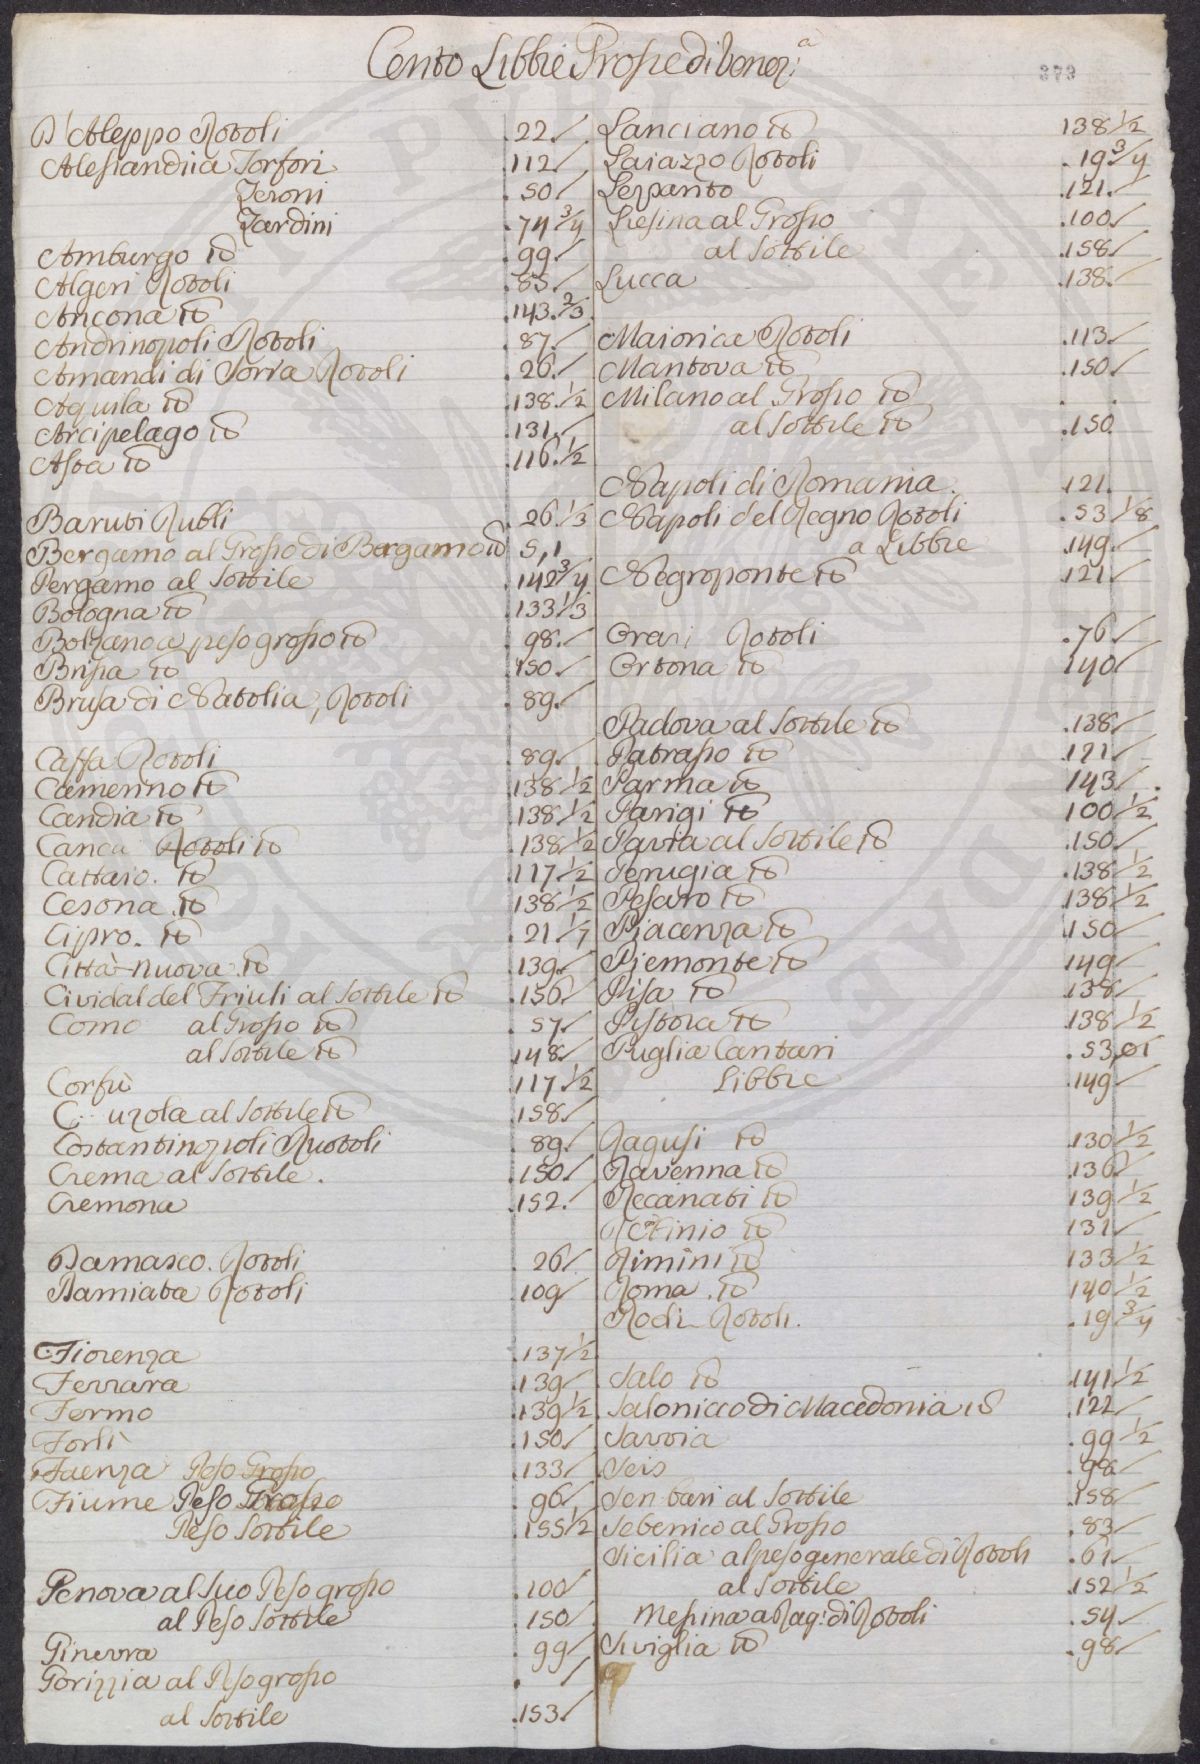 Cento Libbre Grosse di Venez:a
373
D'Aleppo Rotoli .22./
Alessandria Forfori .112./
Zeroni .50./
Zardini .74 3/4
Amburgo id .99./
Algeri Rotoli .83./
Ancona id .143.2/3
Andrinopoli Rotoli .87./
Amandi di Soria Rotoli .26./
Aquila id .138.1/2
Arcipelago id .131./
Asta id .116.1/2
Baruti Rubli .26 1/3
Bergamo al Grosso di Bergamo id 5,1
Bergamo al Sottile .142 3/4
Bologna id .133 1/3
Bolzano a peso grosso id .98./
Brissa id .150./
Brusa di Natolia, Rotoli .89./
Caffa Rotoli .89./
Camerino id .138 1/2
Candia id .138 1/2
Canea Rotoli id .138 1/2
Cattaro. id .117 1/2
Cesena. id .138 1/2
Cipro. id .21 1/7
Città-nuova. id .139./
Cividal del Friuli al Sottile id .156/
Como al Grosso id .57./
al Sottile id .148./
Corfù .117 1/2
uzola al Sottile id .158/
Costantinopoli Ruotoli .89./
Crema al Sottile. .150./
Cremona .152./
Damasco. Rotoli .26/
Damiata Rotoli .109/
Fiorenza .137 1/2
Ferrara .139/
Fermo .139 1/2
Forlì .150./
Faenza Peso Grosso .133/
Fiume Peso Grosso .96/
Peso Sottile .155 1/2
Genova al suo Peso grosso .100/
al Peso Sottile .150/
Ginevra .99/
Gorizzia al Peso grosso ./
al Sottile .153./
Lanciano id 138 1/2
Laiazzo Rotoli .19 3/4
Lepanto .121./
Liesina al Grosso .100/
al Sottile .158/
Lucca .138./
Maiorica Rotoli .113./
Mantova id .150./
Milano al Grosso id . .
al Sottile id .150.
Napoli di Romania. .121.
Napoli del Regno Rotoli .53 1/8
a Libbre .149./
Negroponte id .121./
Orani Rotoli .76./
Ortona id .140/
Padova al Sottile id .138/
Patrasso id .121/
Parma id .143/.
Parigi id 100 1/2
Pavia al Sottile id .150/
Perugia id .138 1/2
Pesaro id .138 1/2
Piacenza id .150/
Piemonte id .149/
Pisa id .138/
Pistora id .138 1/2
Puglia Cantari .53,01
Libbre .149/
Ragusi id .130 1/2
Ravenna id .136/
Recanati id .139 1/2
Retinio id .131/
Rimini id .133 1/2
Roma. id .140 1/2
Rodi Rotoli. .19 3/4
Salo id .141 1/2
Salonicco di Macedonia id .122/
Savoia .99 1/2
Seio .98./
al Sottile .158/
Sebenico al Grosso .83/
Sicilia al peso generale di Rotoli .61/
al Sottile .152 1/2
Messina a Rag.: di Rotoli .54./
Siviglia id .98/